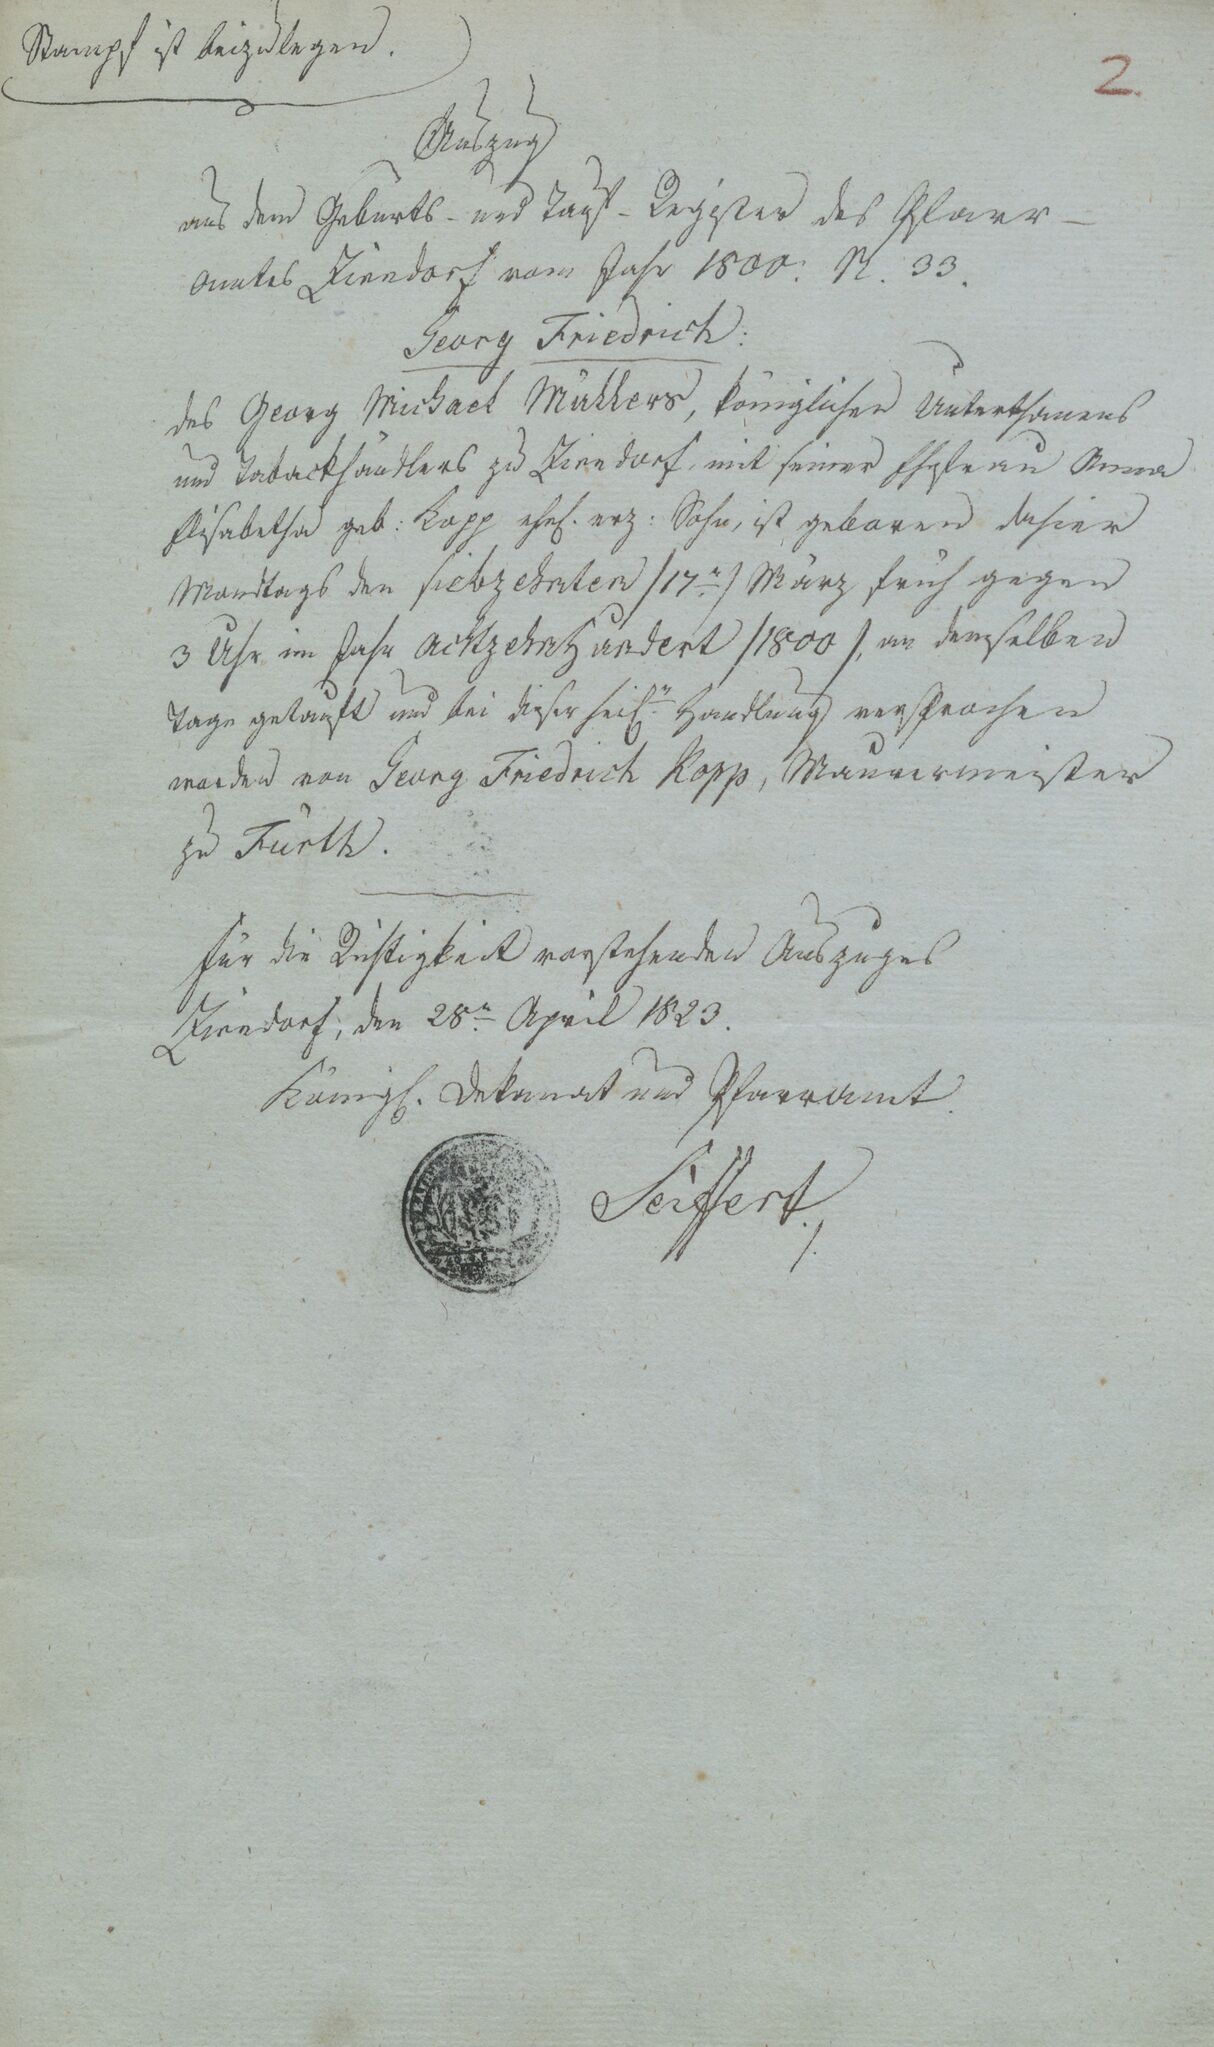 Stampf ist beizulegen.
2.
Auszug
aus dem Geburts- und Tauf-Register des Pfarr-
amtes Zirndorf vom Jahr 1800. N. 33.
Georg Friedrich:
des Georg Michael Müllers, königlichen Unterthanens
und Tabackhändlers zu Zirndorf, mit seiner Ehefrau Anna
Elisabetha geb: Kopp ehel. erz: Sohn, ist geboren dahier
Mondtags den siebzehnten /17n/ März früh gegen
3 Uhr im Jahr achtzehnhundert /1800/, an demselben
Tage getauft und bei dieser heiln Handlung versprochen
worden von Georg Friedrich Kopp, Maurermeister
zu Fürth.
Für die Richtigkeit vorstehenden Auszuges
Zirndorf, den 28n April 1823.
Königl. Dekanat und Pfarramt.
Seiffert.